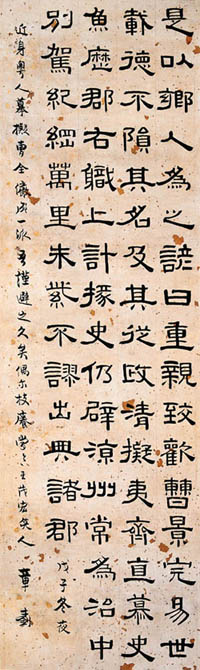 是以鄉人為之諺曰重親致歡曹景完易世
載德不隕其名及其從政清擬夷齊直慕史
魚歷郡右職上計掾史仍辟涼州常為治中
別駕紀綱萬里朱紫不謬出典諸郡
戊子冬夜
近身粵人摹擬曹全儼成一派吾謹避之久矣偶尔技癢王茂宏笑人 章